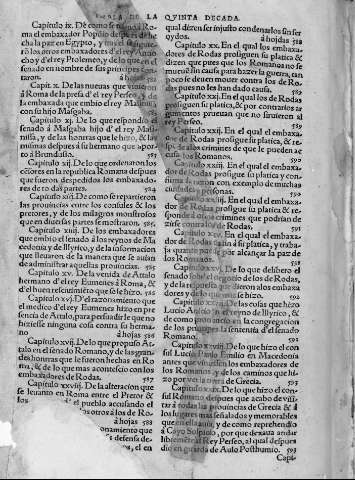 TABLA DE LA QVINTA DECADA.
Capitulo ix. De como
ma el embaxador Popilio despues de he
cha la paz en Egypto, y
rō los otros embaxadores d'el rey
cho y d'el rey Ptolemeo, y de lo que en el
senado en nombre de sus principes
taron. á hojas
Capit. x. De las nueuas que vinieron
á Roma de la presa d'el rey Perseo, y de
la embaxada que embio el rey
con su hijo Masgaba.
Capitulo xj. De lo que respondio el
senado á Masgaba hijo d'el rey
nissa, y de las honras que le hizo, & las
mismas despues á su hermano que
tò á Brundusio. 583
Capitulo xij. De lo que ordenaron los
cēsores en la republica Romana despues
que fueron despedidos los embaxado-
res de todas partes. 584
Capitulo xiij. De como se repartieron
las prouincias entre los consules & los
pretores, y de los milagros monstrosos
que en diuersas partes se mostrarō. 585
Capitulo xiiij. De los embaxadores
que embio el senado á los reynos de Ma
cedonia y de Illyrico, y de la informacion
que lleuaron de la manera que se auian
de administrar aquellas prouincias. 585
Capitulo xv. De la venida de Attalo
hermano d'el rey Eumenes á Roma, &
d'el buen rescibimiēto que se le hizo. 586
Capitulo xvj. D'el razonamiento que
el medico d'el rey Eumenes hizo en pre
sencia de Attalo, para persuadirle que no
hiziesse ninguna cosa contra su herma-
no á hojas
Capitulo xvij. De lo que propuso At-
talo en el senado Romano, y de las gran
des honras que le fueron hechas en Ro
ma, & de lo que mas acontescio con los
embaxadores de Rodas. 587
Capitulo xviij. De la alteracion que
se leuanto en Roma entre el Pretor &
los el pueblo acusando el
los otros á los de Ro-
á hojas 588
onamiento que
defensa de-
en el
qual dizen ser injusto condenarlos sin ser
oydos. á hojas 588
Capitulo xx. En el qual los embaxa-
dores de Rodas prosiguen su platica &
dizen que pues que los Romanos no se
mouen sin causa para hazer la guerra, tan
poco se deuen mouer contra los de Ro-
das pues no les han dado causa. 589
Capitulo xxj. En el qual los de Rodas
prosiguen su platica, & por contrarios ar
gumentos prueuan que no siruieron al
rey Perseo. 589
Capitulo xxij. En el qual el embaxa-
dor de Rodas prosigue su platica, & res
ponde a los crimines de que le pueden ac
cusar los Romanos. 590
Capitulo xxiij. En el qual el embaxa-
dor de Rodas prosigue su platica y con-
firma su razon con exemplo de muchas
ciudades y personas. 590
Capitulo xxiiij. En el qual el embaxa-
dor de Rodas prosigue su platica & re-
sponde á otros crimines que podrian de-
zir contra los de Rodas. 591
Capitulo xxv. En el qual el embaxa-
dor de Rodas da fin á su platica, y traba-
ja quanto puede por alcançar la paz de
los Romanos. 591
Capitulo xxvj. De lo que delibero el
senado sobre el negocio de los de Rodas,
y de la respuesta que se dieron a los embaxa
dores y de lo que mas se hizo. 592
Capitulo xxvij. De las cosas que hizo
Lucio Anicio en el reyno de Illyrico, &
de como pronuncio en la congregacion
de los principes la sentencia d'el senado
Romano. 592
Capitulo xxviij. De lo que hizo el con
sul Lucio Paulo Emilio en Macedonia
antes que viniessen los embaxadores de
los Romanos y de los caminos que hi-
zo por ver la tierra de Grecia. 593
Capitulo xxix. De lo que hizo el con-
sul Romano despues que acabo de visi-
tar á todas las prouincias de Grecia & á
los lugares mas señalados y memorables
que en ella auia, y de como reprehendio
á Cayo Sulpicio, por que dexaua andar
libremēte al Rey Perseo, al qual despues
dio en guarda de Aulo Posthumio. 593
Capi-